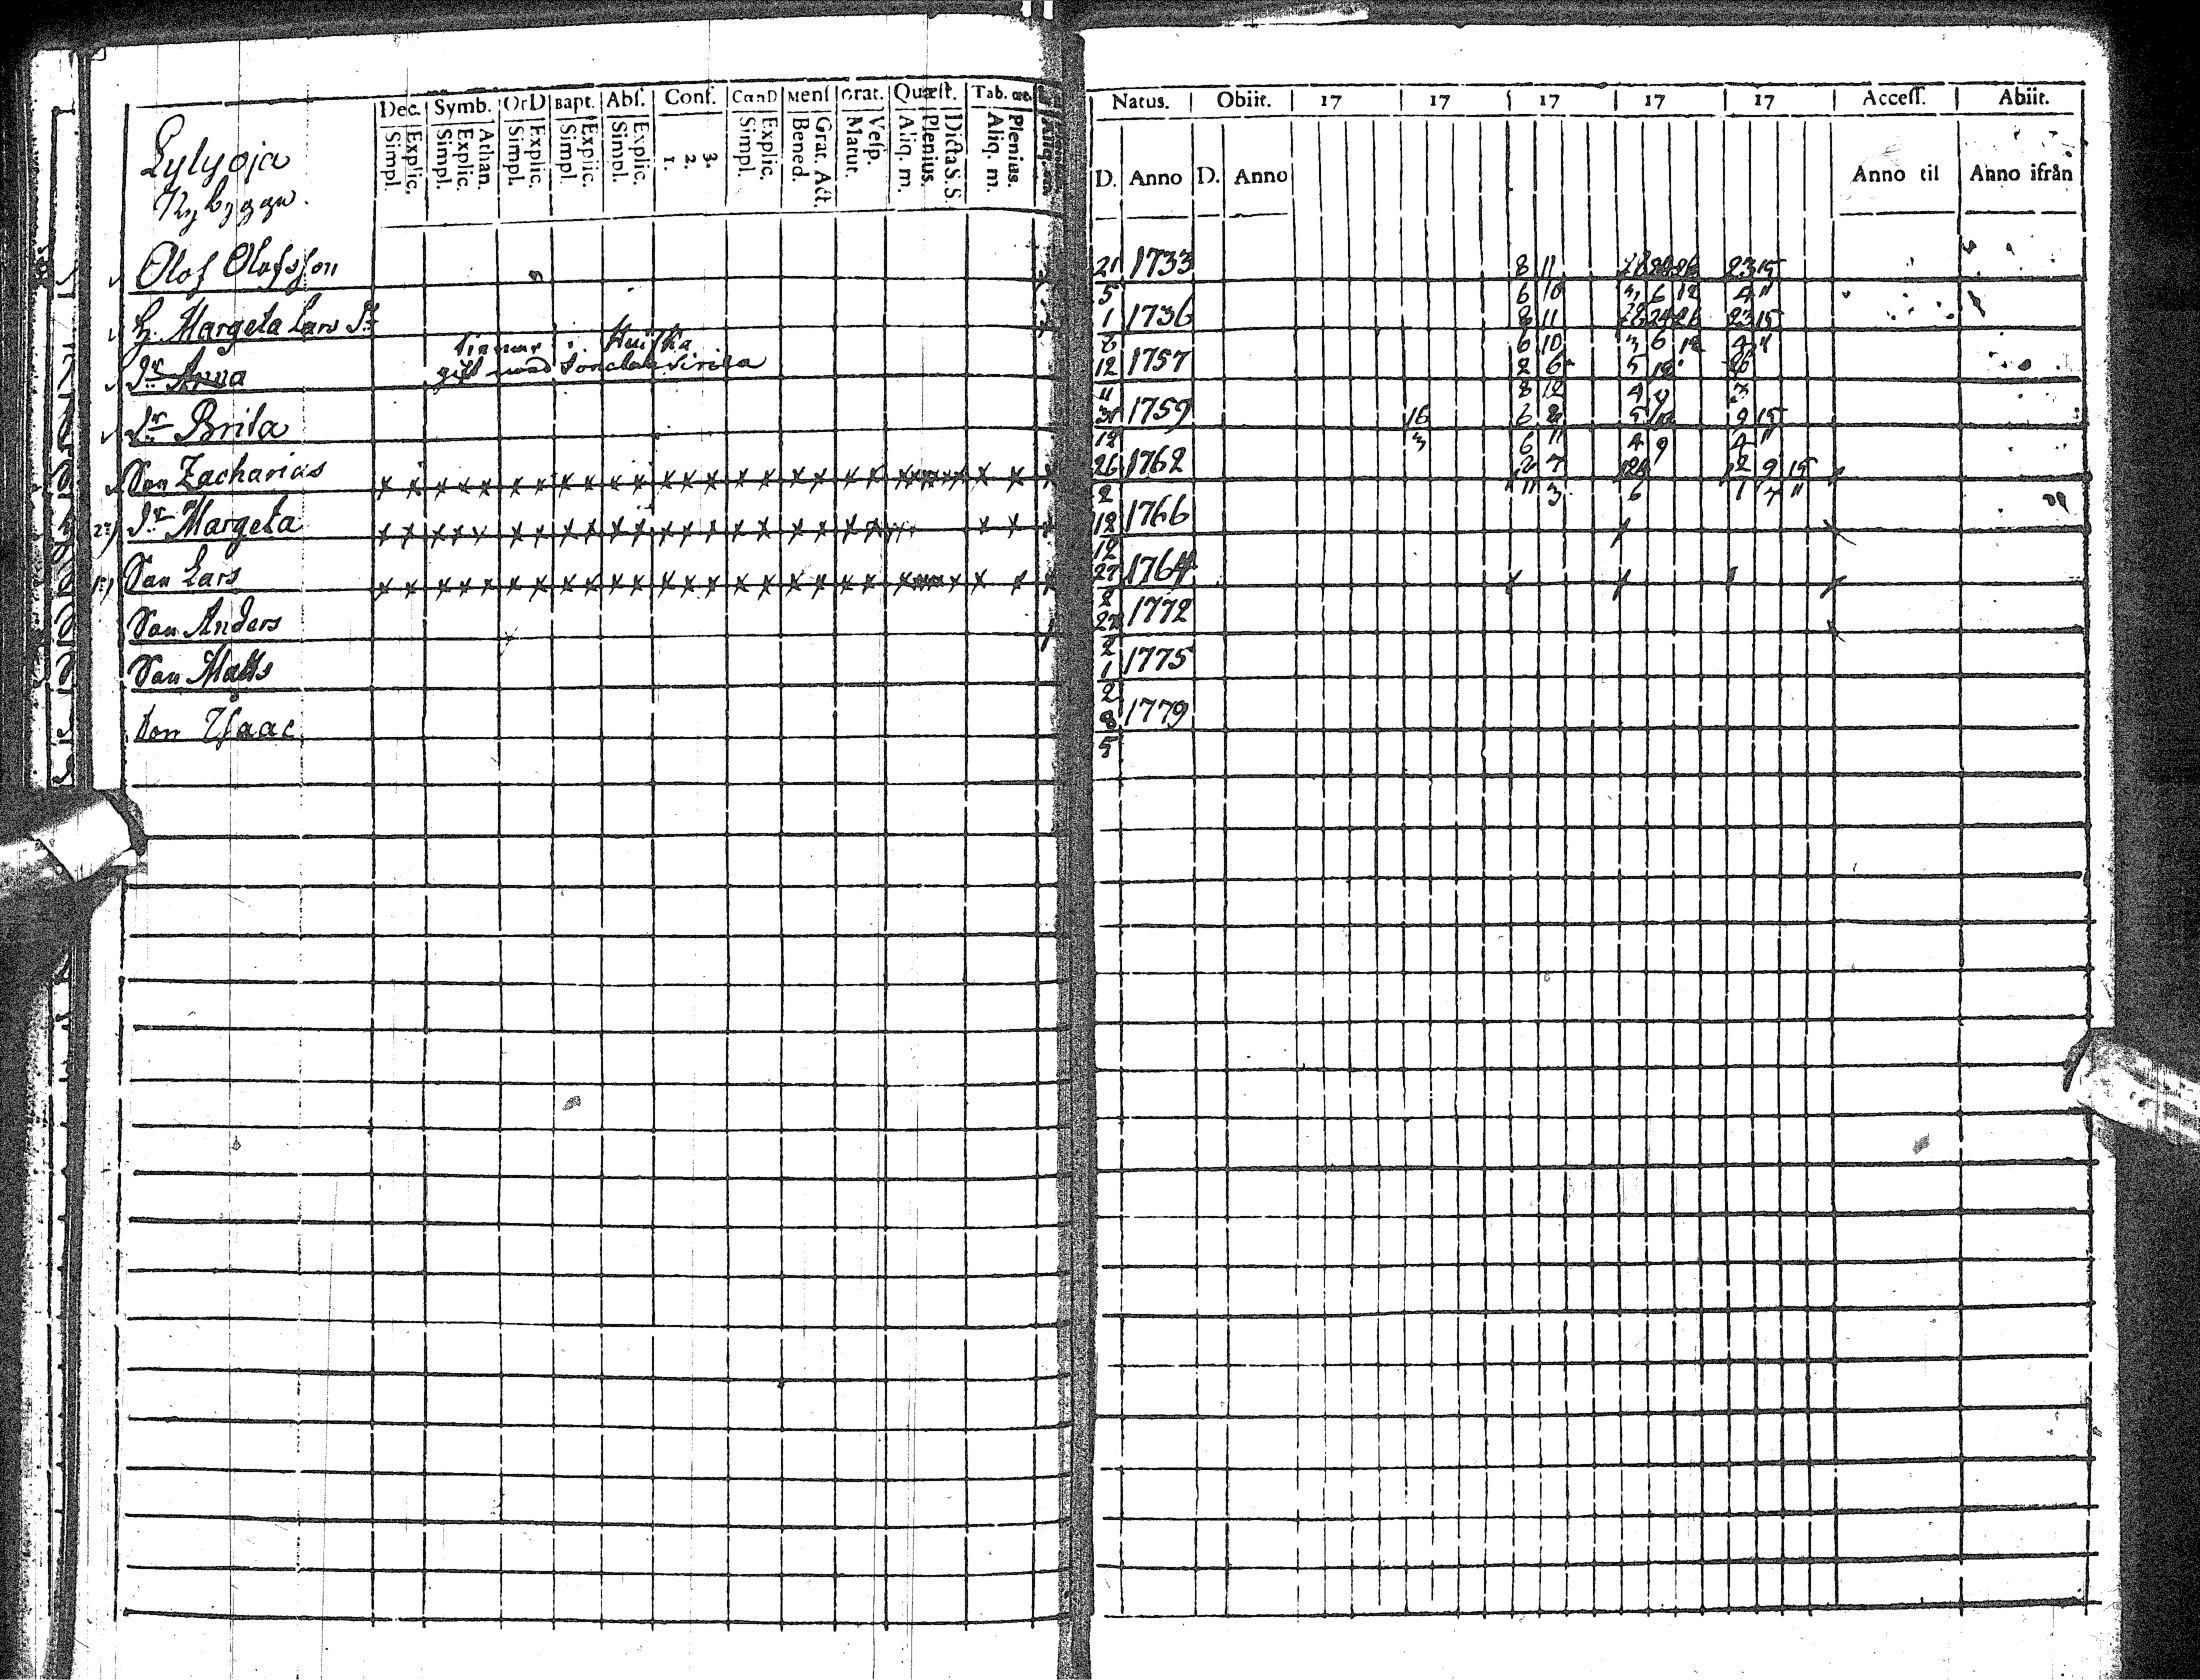 Dec. Symb. OrD Bapt. Abſ. Conf. CœnD Menſ Grat. Quæſt. Tab. œc.
Simpl. Explic. Simpl. Explic. Athan. Simpl. Explic. Simpl. Explic. Simpl. Explic. 1. 2. 3. Simpl. Explic. Bened. Grat. Act. Matut. Veſp. Aliq. m. Plenius. Dicta S.S. Aliq. m. Plenius.
Natus. Obiit. 17 17 17 17 17 Acceſſ. Abiit.
D. Anno D. Anno Anno til Anno ifrån
Lylyoja
Nybygge.
Olof Olofsson 21 5 1733 8 6 11 10 23 4 15 11
H. Margeta Lars Dr 1 1736 8 6 11 10 23 4 15
gift med
Dr Anna 12 11 1757 2 8 6 12 5 4
Dr Brita 12 1759 16 3 6 6 2 11 4 9 9 4 15 11
Son Zacharias 26 2 1762 7 3 2 1 9 7 15 11
2:) Dr Margeta 12 12 1766
1:) Son Lars 27 2 1764
Son Anders 27 2 1772
Son Matts 1 2 1775
Son Isaac 8 5 1779